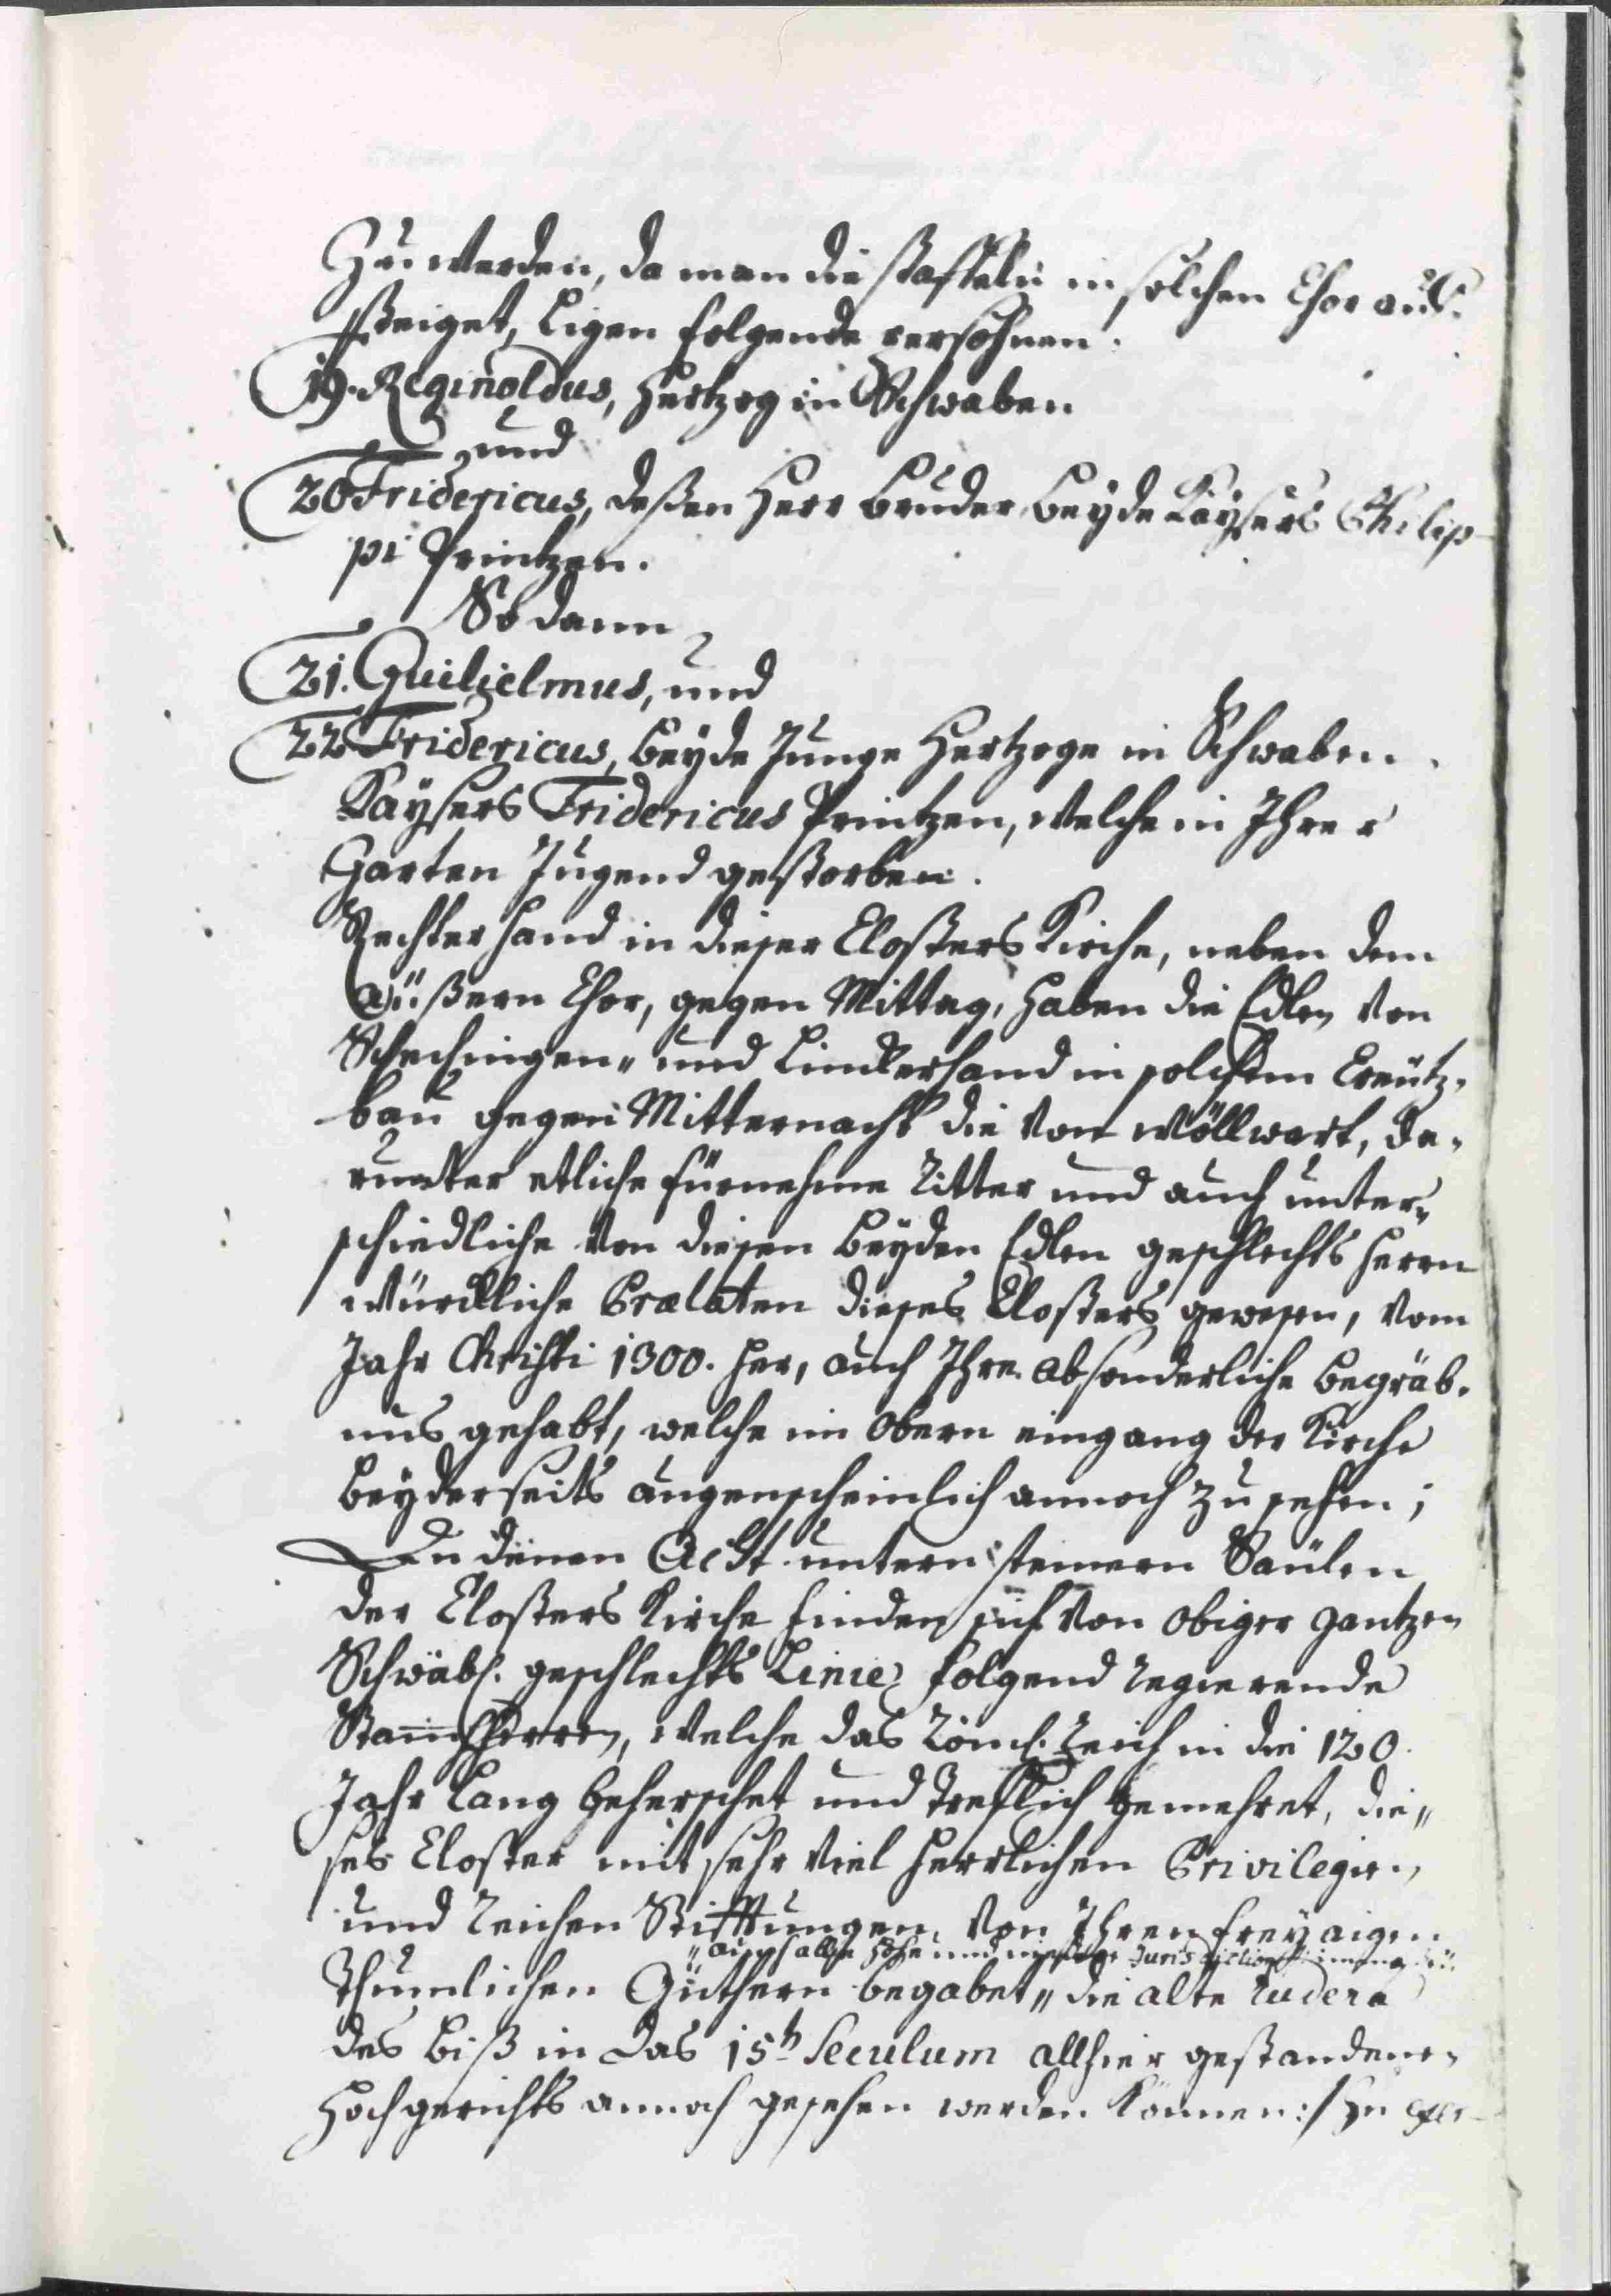 Zu werden, da man die staffeln in solchen Chor auf-
steiget, ligen folgende persohnen.
19. Reginoldus, Hertzog in Schwaben
und
20 Fridericus, deßen Herr Bruder, beyde Kaÿsers Philip-
pi Printzen.
So dann
21. Guilielmus, und
22 Fridericus, beÿde Junge Hertzoge in Schwaben.
Kaÿsers Fridericus Printzen, welche in Ihrer
Zarten Jugend gestorben.
Rechter Hand in dieser Closters Kirche, neben dem
äüßern Chor, gegen Mittag, haben die Edlen von
Schechingen„ und Lincker hand in solchem Creütz-
bau gegen Mitternacht die von Wöllwart, da-
runter etliche fürnehme Ritter und auch unter-
schiedliche von diesen beÿden Edlen geschlechts Herrn
würckliche Praelaten dieses Closters gewesen, vom
Jahr Christi 1300. her, auch Ihre absonderliche begräb-
nus gehabt, welche im obern eingang der Kirche
beÿderseits augenscheinlich annoch zu sehen;
An denen Acht untern steinern Säulen
der Closters Kirche finden sich von obiger gantzen
Schwäb. geschlechts Linie folgend regierende
Stammherren, welche das Röm. Reich in die 120.
Jahr lang beherschet und trefflich gemehret, die„
ses Closter mit sehr viel herrlichen Privilegien,
und reichen Stifftungen von Ihren freÿ aigen
„auch alle hohe und niedere Jurisdiction
thumlichen Güthern begabet„ die alte rudera
des biß in das 15te Seculum allhier gestandenen
Hochgerichts annoch gesehen werden können:/ Zu